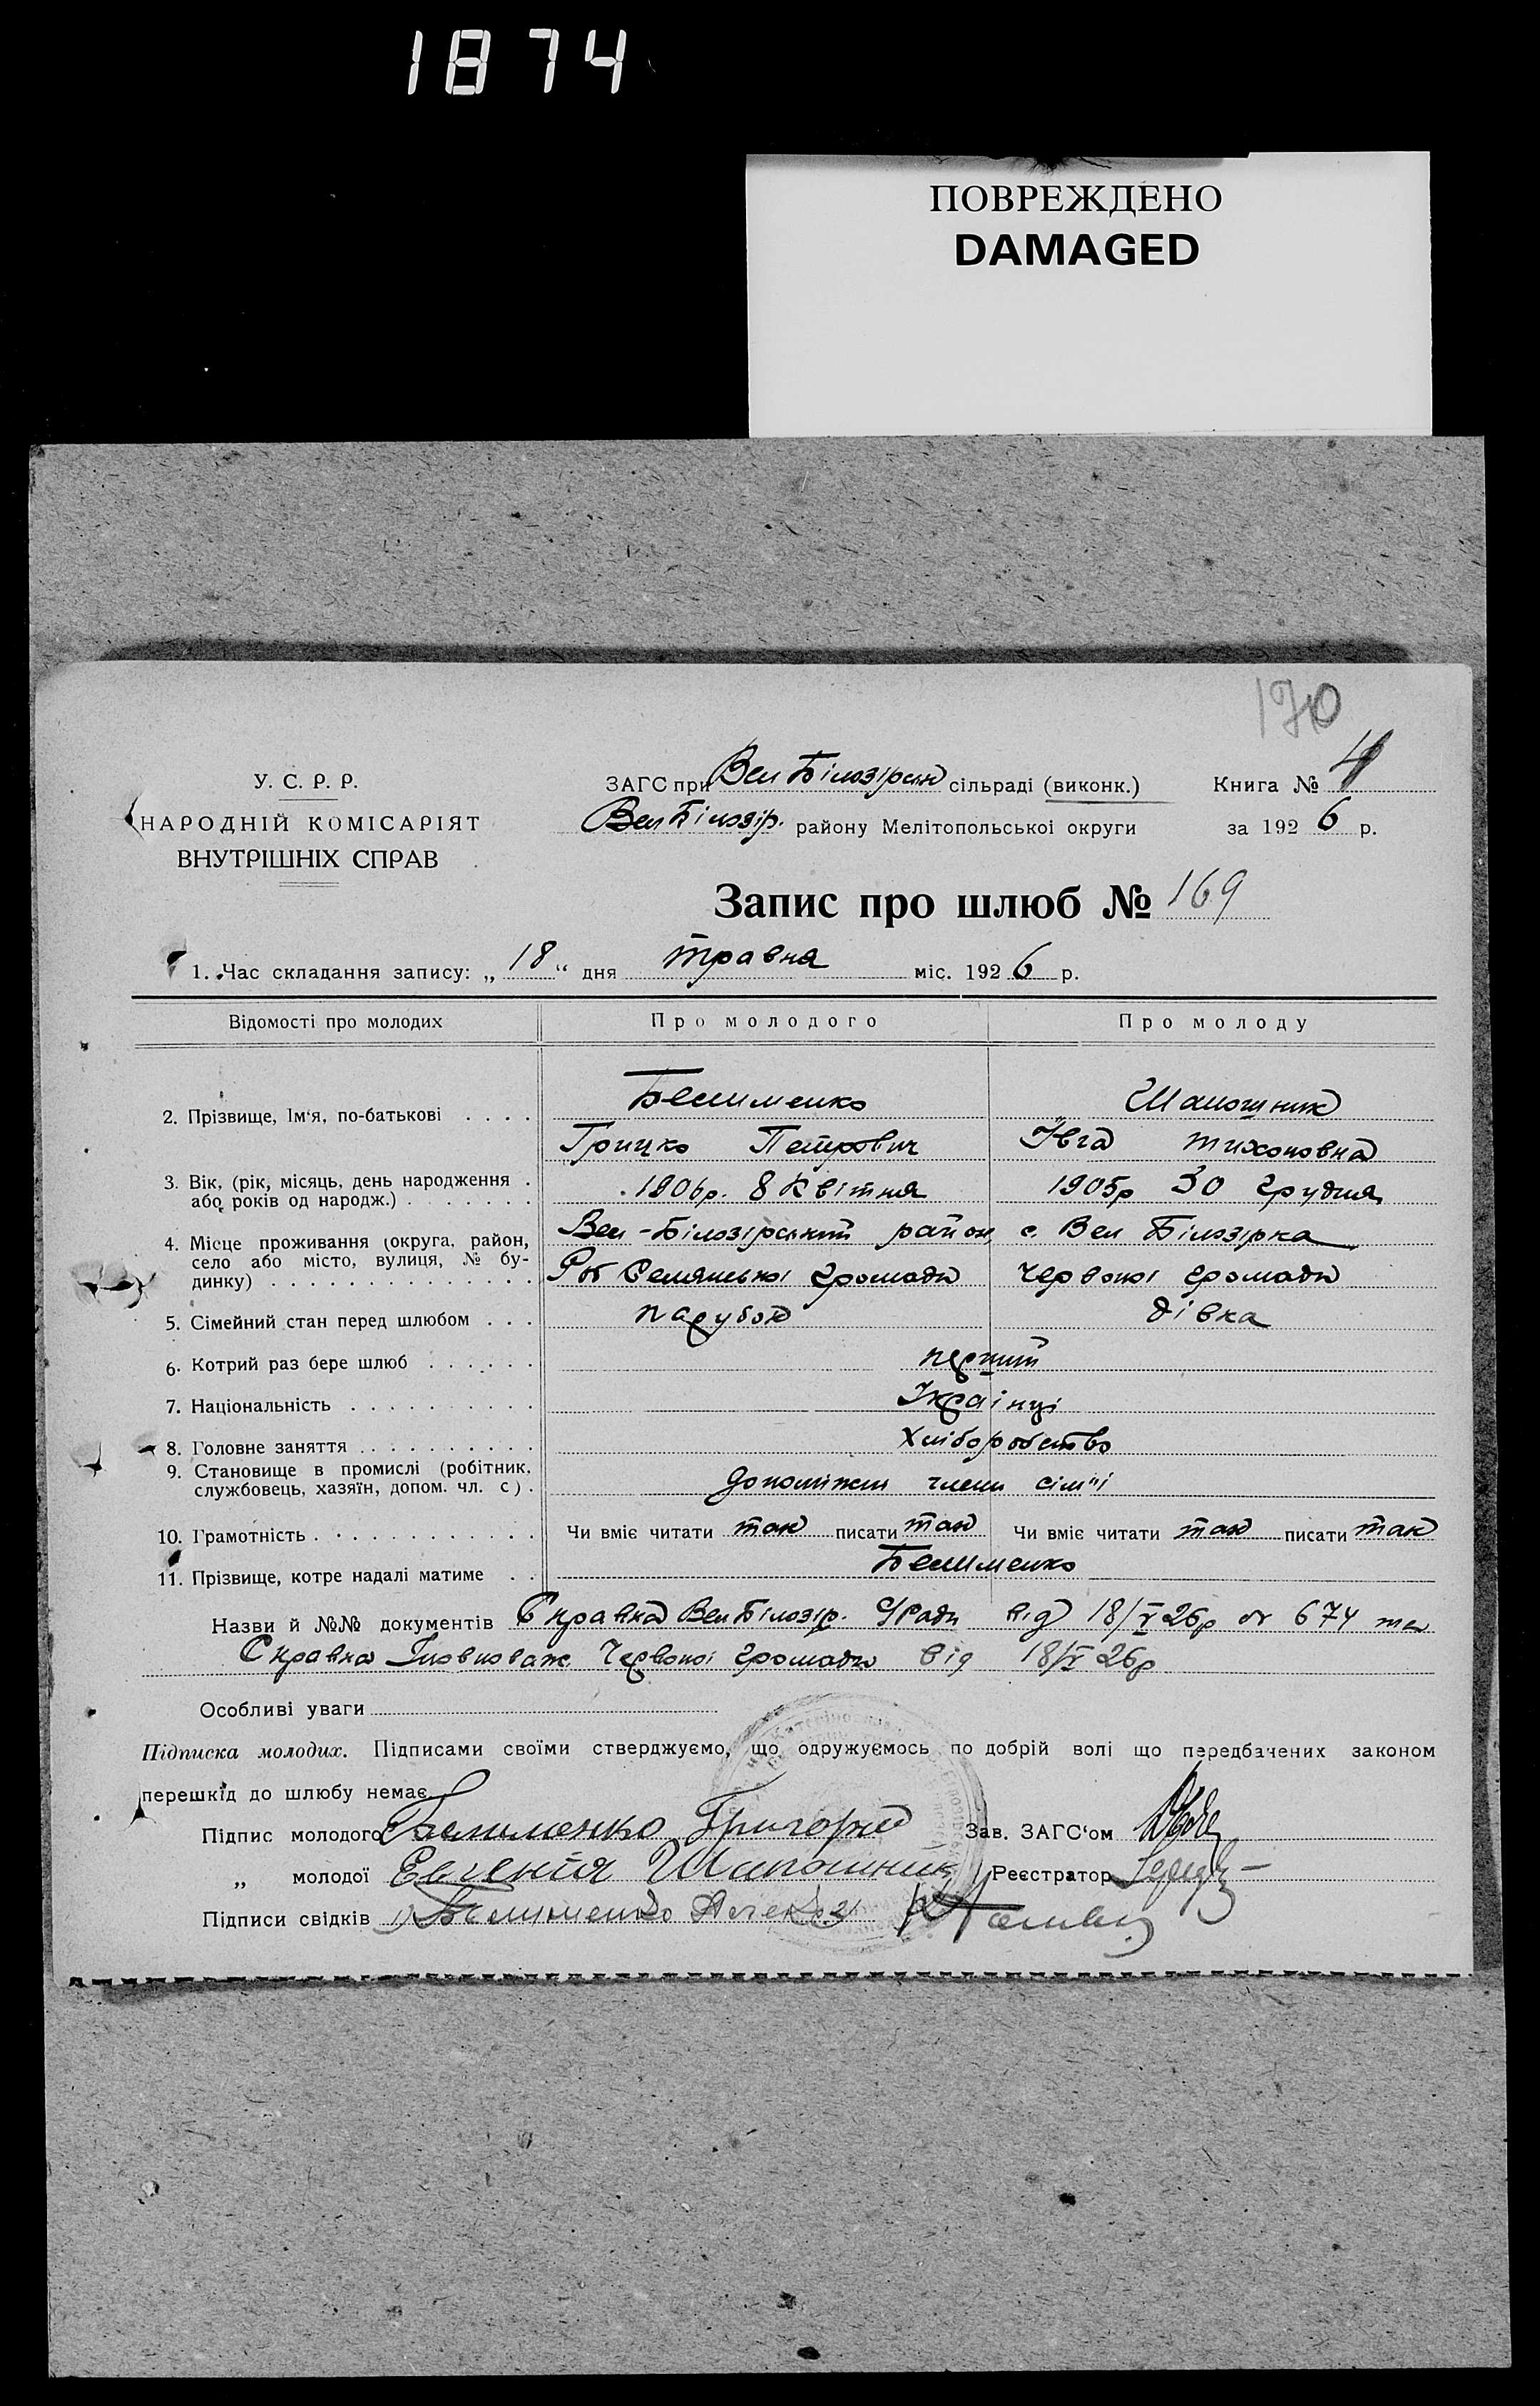 1874
ПОВРЕЖДЕНО
DAMAGED
170
У. С. Р. Р.
НАРОДНІЙ КОМІСАРІЯТ
ВНУТРІШНІХ СПРАВ
ЗАГС при Вел Білозірськ сільраді (виконк.) Книга № 4
Вел Білозір. району Мелітопольської округи за 1926 р.
Запис про шлюб № 169
1. Час складання запису: „18“ дня травня міс. 1926 р.
Відомості про молодих Про молодого Про молоду
2. Прізвище, Ім'я, по-батькові . . . . Бешименко Шапошник
Грицко Петрович Івга тихоновна
3. Вік, (рік, місяць, день народження . 1906р. 8 Квітня 1905р 30 грудня
або років од народж.) . . . . . . .
4. Місце проживання (округа, район, Вел-Білозірський район с. Вел Білозірка
село або місто, вулиця, № будинку) . . . громади Червоної громади
5. Сімейний стан перед шлюбом . . . парубок дівка
6. Котрий раз бере шлюб . . . . . . перший
7. Національність . . . . . . . . . . Українці
8. Головне заняття . . . . . . . . . . Хліборобство
9. Становище в промислі (робітник, службовець, хазяїн, допом. чл. с). допоміжні члени сім"ї
10. Грамотність . . . . . . . . . . . . Чи вміє читати так писати так Чи вміє читати так писати так
11. Прізвище, котре надалі матиме . . Бешименко
Назви й №№ документів Справка Вел Білозір. С/Ради від 18/V 26р № 674 та
Справка Уповноваж. Червоної громади від 18/V 26р
Особливі уваги
Підписка молодих. Підписами своїми стверджуємо, що одружуємось по добрій волі що передбачених законом
перешкід до шлюбу немає.
Підпис молодого Бешименко Григорий Зав. ЗАГС'ом
„ молодої Евгения Шапошник Реєстратор
Підписи свідків 1) Бешименко